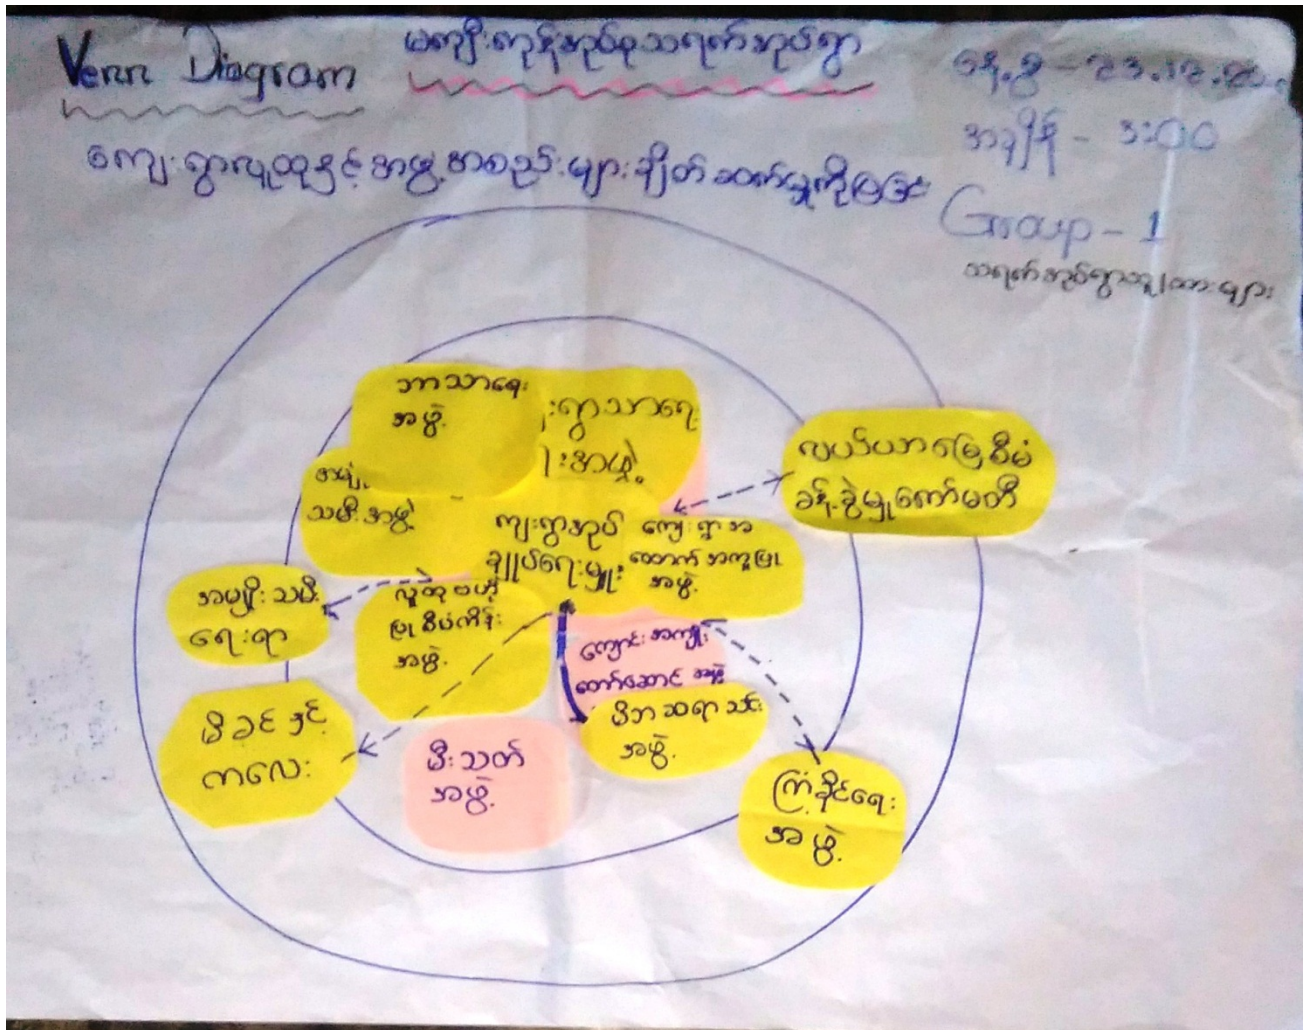 Venn Diagram
မကျီးကုန်းအုပ်စုသရက်အုပ်ရွာ
နေ့စွဲ - 23.12.20
အချိန် - 3:00
ကျေးရွာလူထုနှင့်အဖွဲ့အစည်းများချိတ်ဆက်မှုကိုပြခြင်း
Group - 1
သရက်အုပ်ရွာသူ/သားများ
ဘာသာရေး
အဖွဲ့
းရွာသာရေး
းအဖွဲ့
လယ်ယာမြေစီမံ
ခန့်ခွဲမှုကော်မတီ
သမီးအဖွဲ့
ကျေးရွာအုပ်
ချုပ်ရေးမှူး
ကျေးရွာအ
ထောက်အကူပြု
အဖွဲ့
အမျိုးသမီး
ရေးရာ
လူထုဗဟို
ပြုစီမံကိန်း
အဖွဲ့
ကျောင်းအကျိုး
တော်ဆောင်အဖွဲ့
မိဘဆရာသင်း
အဖွဲ့
မိခင်နှင့်
ကလေး
မီးသတ်
အဖွဲ့
ကြံ့ခိုင်ရေး
အဖွဲ့